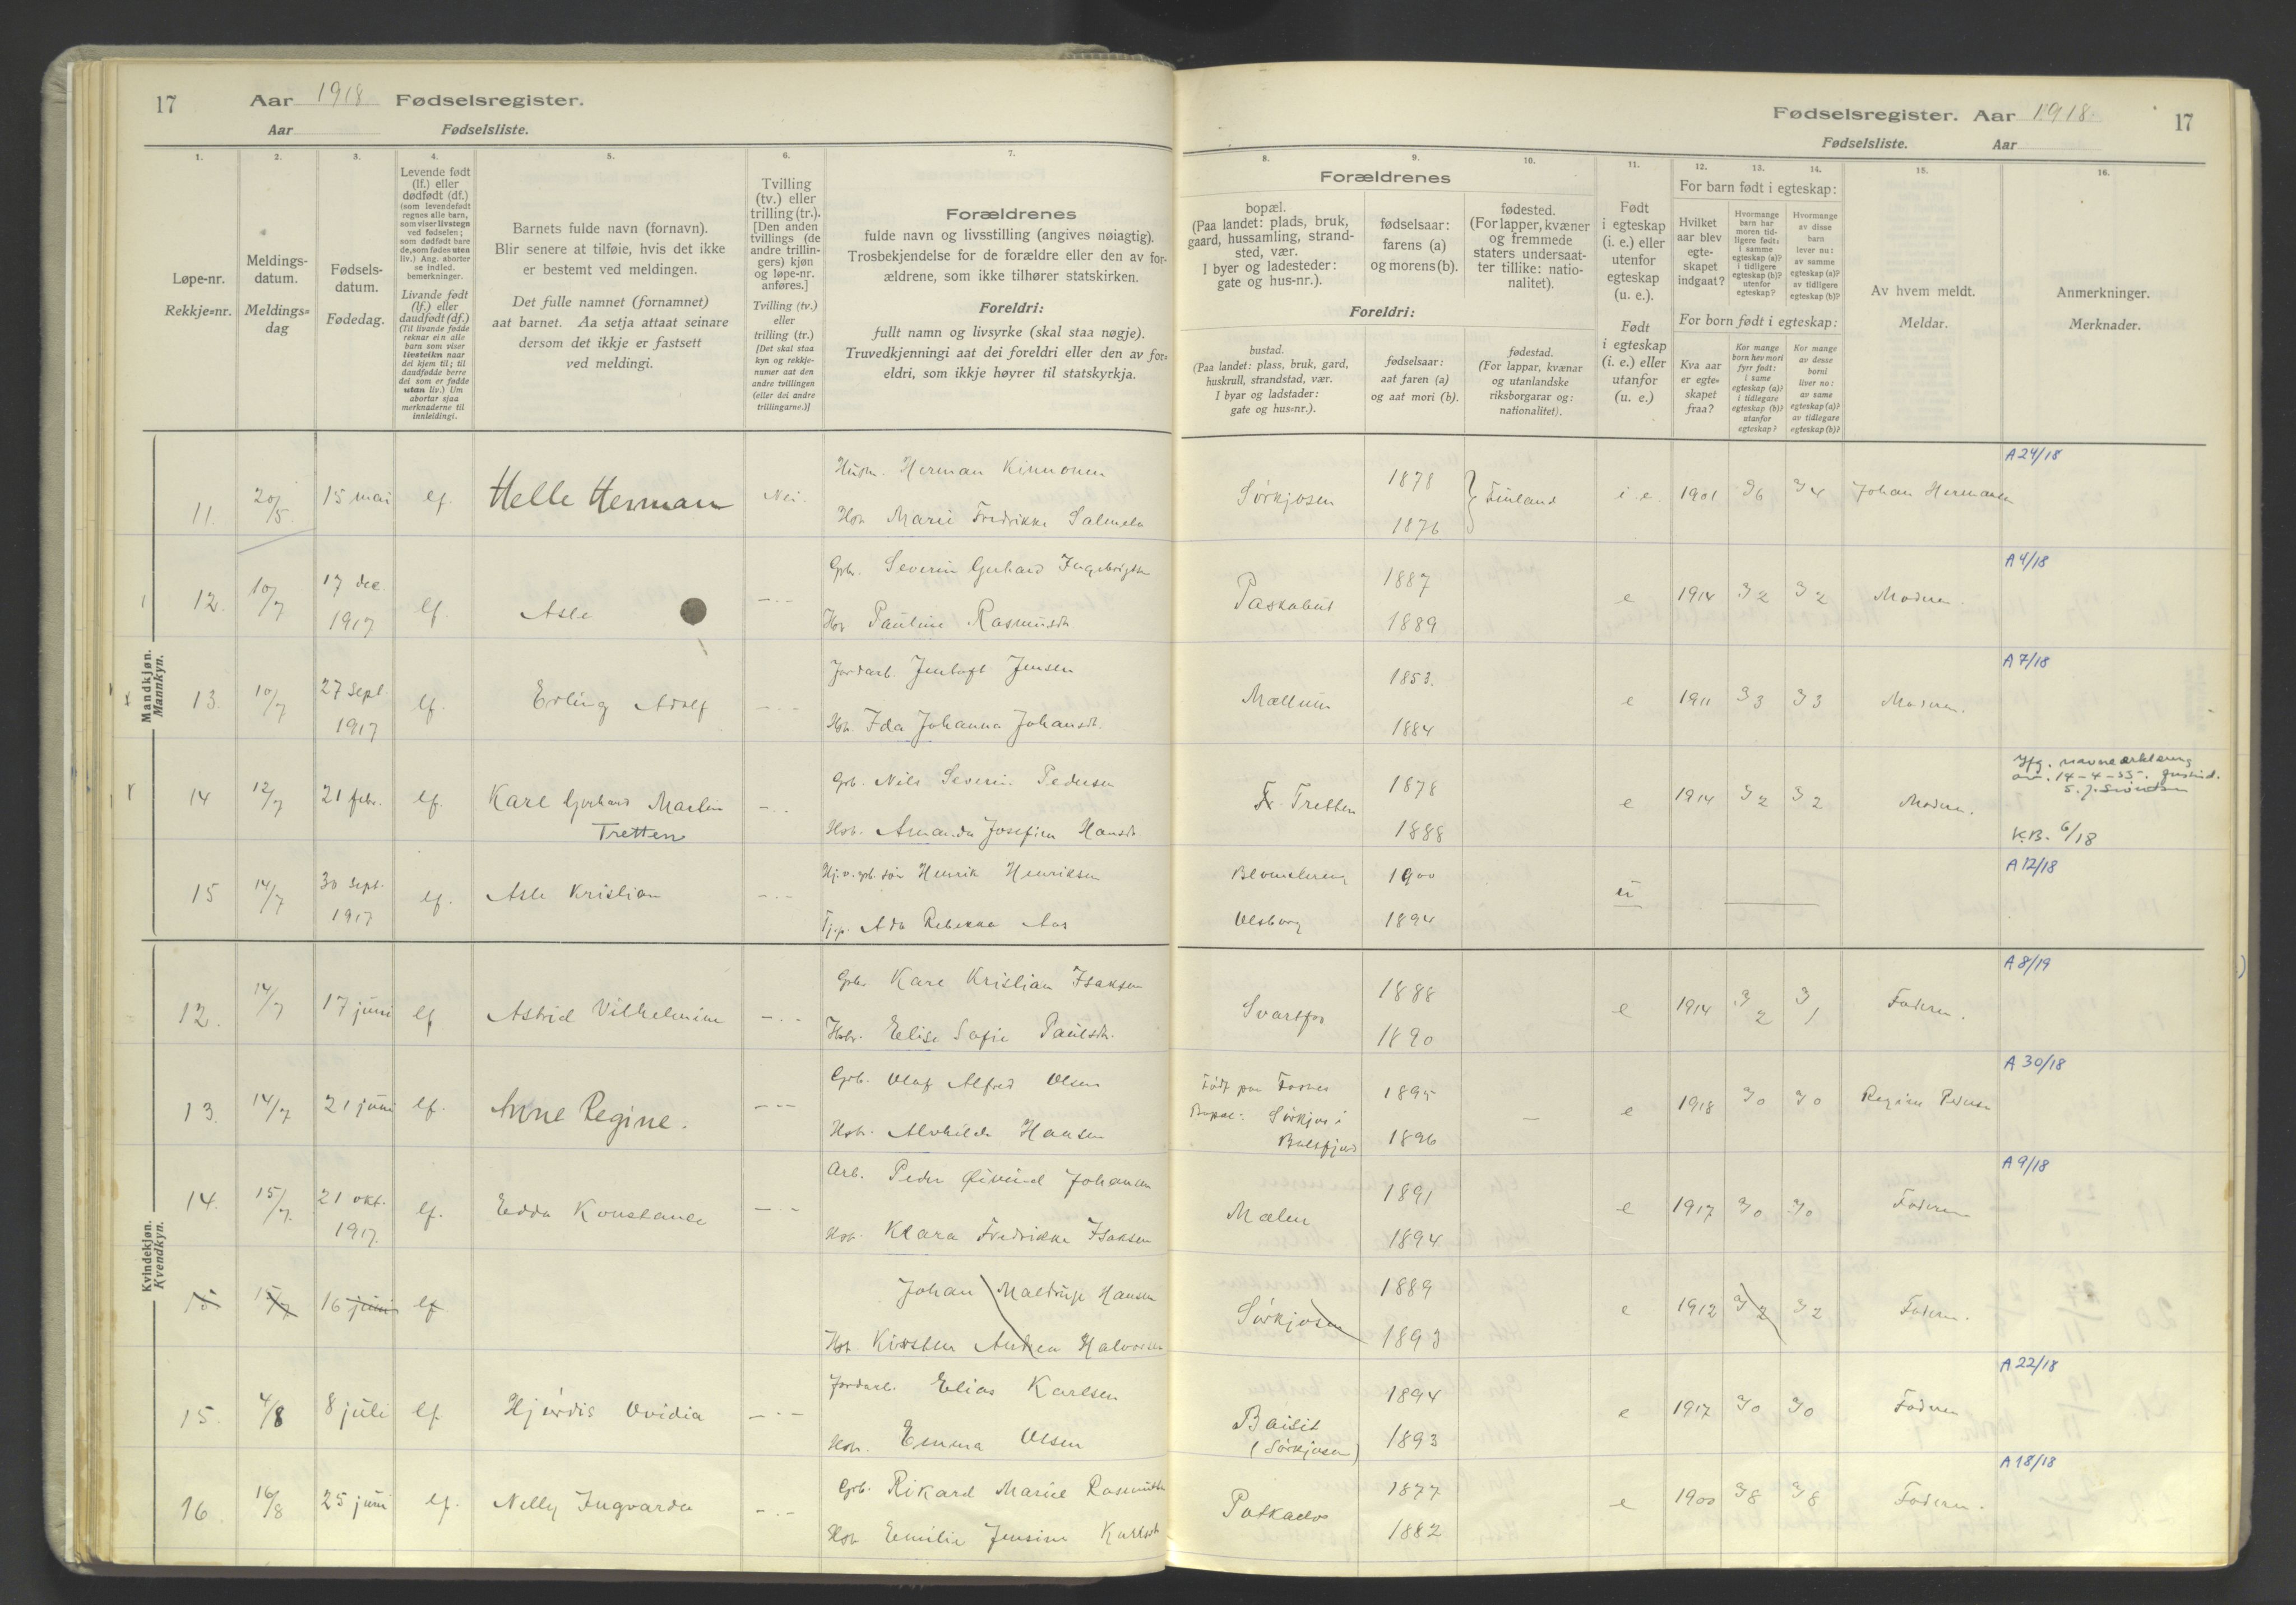 17 Aar 1918 Fødselsregister.
Aar Fødselsliste.
1. 2. 3. 4. 5. 6. 7.
Løpe-nr.
Rekkje=nr.
Meldings-
datum.
Meldings=
dag
Fødsels-
datum.
Fødedag.
Levende født
(lf.) eller
dødfødt (df.)
(som levendefødt
regnes alle barn,
som viser livstegn
ved fødselen;
som dødfødt bare
de, som fødes uten
liv.) Ang. abortor
se indled.
bemerkninger.
Livande født
(lf.) eller
daudfødt (df.)
(Til livande fødde
reknar ein alle
barn som viser
livsteikn naar
dei kjem til; til
daudfødde berre
dei som er fødde
utan liv.) Um
abortar sjaa
merknaderne til
innleidingi.
Barnets fulde navn (fornavn).
Blir senere at tilføie, hvis det ikke
er bestemt ved meldingen.
Det fulle namnet (fornamnet)
aat barnet. Aa setja attaat seinare
dersom det ikkje er fastsett
ved meldingi.
Tvilling
(tv.) eller
trilling (tr.).
[Den anden
tvillings (de
andre trillin-
gers) kjøn
og løpe-nr.
anføres.]
Tvilling (tv.)
eller
trilling (tr.)
[Det skal staa
kyn og rekkje-
numer aat den
andre tvillingen
(eller dei andre
trillingarne.)]
Forældrenes
fulde navn og livsstilling (angives nøiagtig).
Trosbekjendelse for de forældre eller den av for-
ældrene, som ikke tilhører statskirken.
Foreldri:
fullt namn og livsyrke (skal staa nøgje).
Truvedkjenningi aat dei foreldri eller den av for=
eldri, som ikkje høyrer til statskyrkja.
Mandkjøn.
Mannkyn.
11. 20/5. 15 mai lf. Helle Herman Nei.
Herman Kinnonen
Marie Fredrikke Salmela
12. 10/7 17 dec. 1917 lf. Asle
Gbr. Severin Gerhard Ingebrigtsen
Pauline Rasmusdt.
13. 10/7 27 sept. 1917 lf. Erling Adolf
Jordarb. Jentoft Jensen
Ida Johanna Johansdt.
14 12/7 21 febr. lf. Kare Gerhard Martin
Tretten
Gb. Nils Severin Pedersen
Amanda Josefine Hansdt.
15 14/7 30 sept. 1917 lf. Asle Kristian
Henrik Henriksen
Tj.p. Ada Rebekka Aas
Kvindekjøn.
Kvendkyn.
12. 14/7 17 juni lf Astrid Vilhelmine
Gbr. Kare Kristian Isaksen
Elise Sofie Paulsdt.
13. 14/7 21 juni lf. Anne Regine.
Gb. Olaf Alfred Olsen
Alvhilde Hansen
14. 15/7. 21 okt. 1917. lf. Edda Konstance
Arb. Peder Øivind Johansen
Klara Fredrikke Isaksen
15 15/7 16 juni lf
Johan Maldrup Hansen
Kirsten Andrea Halvorsen
15. 4/8 8 juli lf. Hjørdis Ovidia
Jordarb. Elias Karlsen
Emma Olsen
16. 16/8 25 juni lf. Nelly Ingvarda
Gb. Rikard Marius
Emilie Jensine
Fødselsregister. Aar 1918. 17
Fødselsliste. Aar
8. 9. 10. 11. 12. 13. 14. 15. 16.
Forældrenes
bopæl.
(Paa landet: plads, bruk,
gaard, hussamling, strand-
sted, vær.
I byer og ladesteder:
gate og hus-nr.).
fødselsaar:
farens (a)
og morens (b).
fødested.
(For lapper, kvæner
og fremmede
staters undersaat-
ter tillike: natio-
nalitet).
Foreldri:
bustad.
(Paa landet: plass, bruk, gard,
huskrull, strandstad, vær.
I byar og ladstader:
gate og hus=nr.).
fødselsaar:
aat faren (a)
og aat mori (b).
fødestad.
(For lappar, kvænar
og utanlandske
riksborgarar og:
nationalitet).
Født
i egteskap
(i. e.) eller
utenfor
egteskap
(u. e.).
Født
i egteskap
(i. e.) eller
utanfor
(u. e.)
For barn født i egteskap:
Hvilket
aar blev
egte-
skapet
indgaat?
Hvormange
barn har
moren tid-
ligere født:
i samme
egteskap (a)?
i tidligere
egteskap (b)?
utenfor
egteskap?
Hvormange
av disse
barn
lever nu:
av samme
egteskap (a)?
av tidligere
egteskap (b)?
For born født i egteskap:
Kva aar
er egte=
skapet
fraa?
Kor mange
born hev mori
fyrr født:
i same
egteskap (a)?
i tidlegare
egteskap (b)?
utanfor
egteskap?
Kor mange
av desse
borni
liver no:
av same
egteskap (a)?
av tidlegare
egteskap (b)?
Av hvem meldt.
Meldar.
Anmerkninger.
Merknader.
A 24/18
Sørkjosen 1878 1876 Finland i. e. 1901 I6 I4 Johan Hermansen
A 4/18
1887 1889 e 1914 I2 I2 Moderen.
A 7/18
1853. 1884 e 1911 I3 I3 Moderen.
Ifg. navneerklering
av. 14-4-55.
K.B. 6/18
Tretten 1878 1888 e 1914 I2 I2 Moderen.
A 12/18
1900 u
Olsborg 1894
A 8/19
Svartfos 1888 1890 e 1914 I2 I1 Faderen.
A 30/18
Født paa
Bopæl: Sørkjos i
Balsfjord
1895 1896 – e 1918 I0 I0 Regine Pedersen
A 9/18
Målen 1891 1894 e 1917 I0 I0 Faderen
Sørkjosen 1889 1893 e 1912 I2 I2 Faderen.
A 22/18
(Sørkjosen) 1894 1893 e 1917 I0 I0 Faderen
A 18/18
1877 1882 e 1900 I8 I8 Faderen.